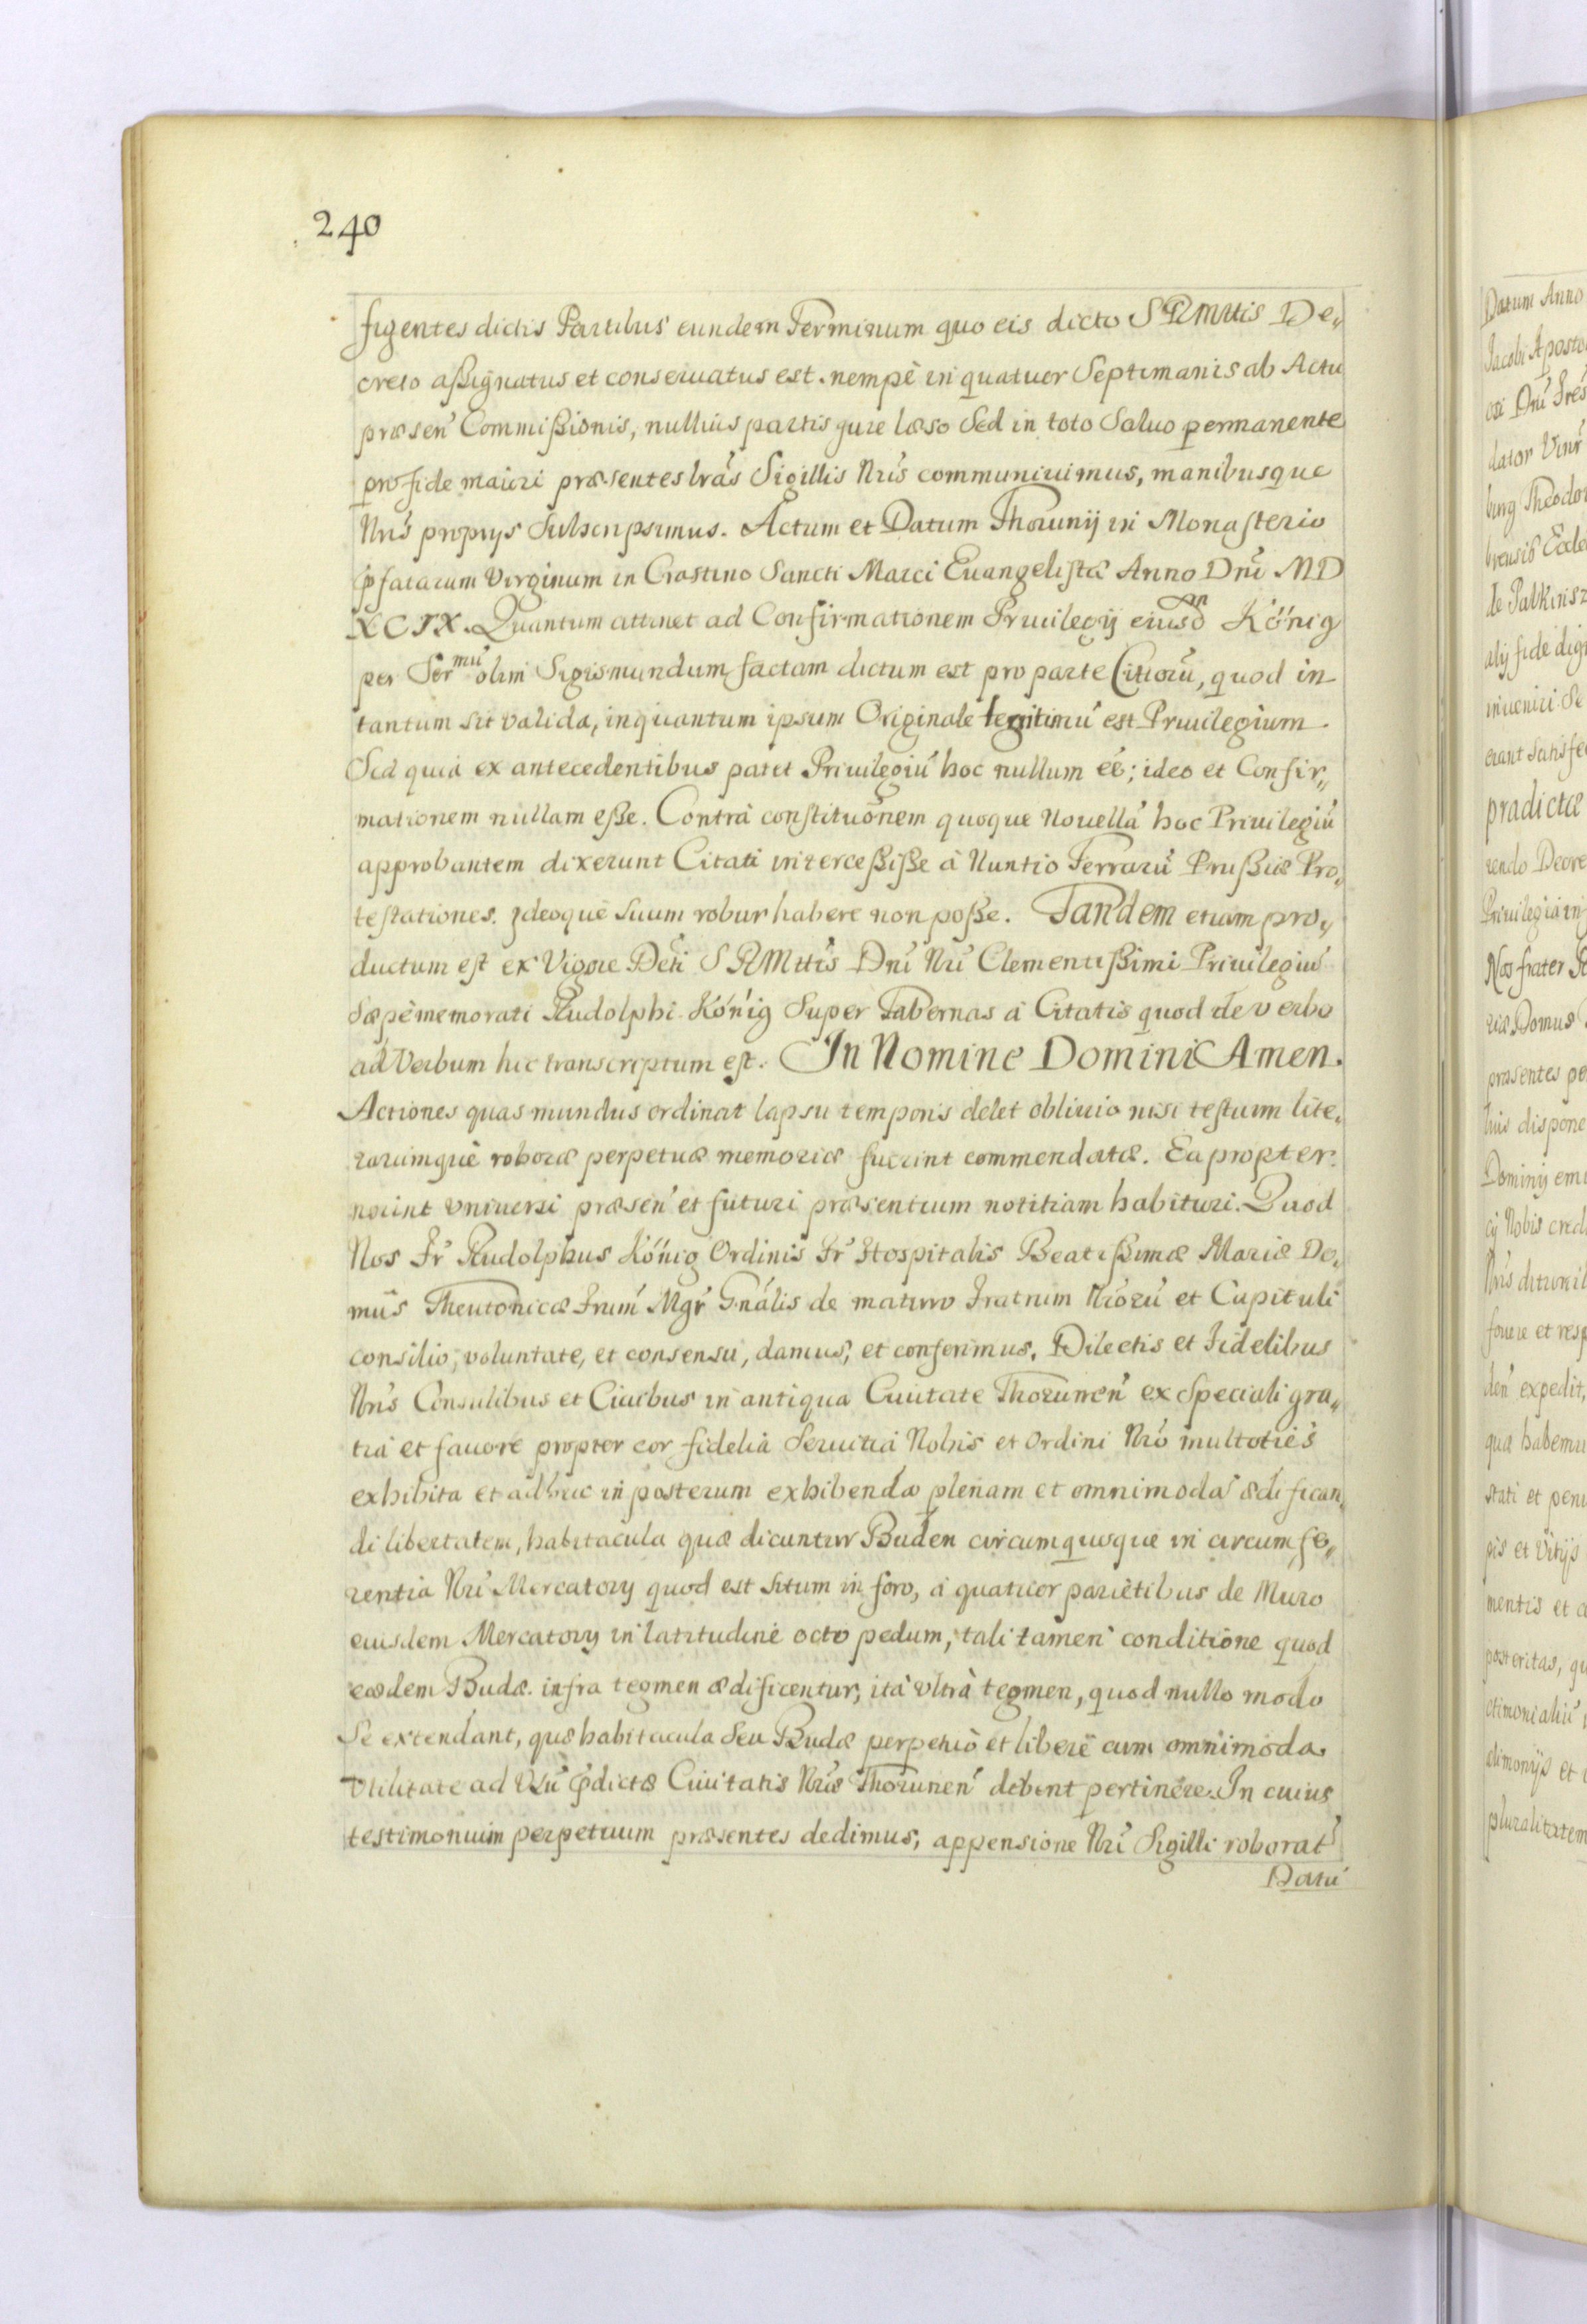 240
figentes dictis Partibus eundem Terminum quo eis dicto S R Mttis De„
creto aßignatus et conseruatus est. nempè in quatuor Septimanis ab Actu
præsen̄ Commißionis, nullius partis gure læso Sed in toto Saluo permanente
pro fide maiori præsentes lrás Sigillis Nrīs communiuimus, manibusque
Nrīs proprys Subscripsimus. Actum et Datum Thorunij in Monasterio
p̄fatarum Virginum in Crastino Sancti Marci Euangelistæ Anno Dnī MD
XCIX. Quantum attinet ad Confirmationem Priuilegij eiusd̄ König
per Ser mū olim Sigismundum factam dictum est pro parte Citiorū, quod in
tantum sit valida, inquantum ipsum Originale legitimū est Priuilegium.
Sed quia ex antecedentibus patet Priuilegiū hoc nullum eē; ideo et Confir„
mationem nullam eße. Contrà constituōnem quoque Nouellā hoc Priuilegiū
approbantem dixerunt Citati intercessiße à Nuntio Terrarū Prußiæ Pro„
testationes. Ideoque suum robur habere non poße. Tandem etiam pro„
ductum est ex Vigore Deti S R Mttis Dnī Nrī Clementißimi Priuilegiū
sæpèmemorati Rudolphi König Super Tabernas à Citatis quod de verbo
ad Verbum hic transcriptum est. In Nomine Domini Amen.
Actiones quas mundus ordinat lapsu temporis delet obliuio nisi testium lite„
rarumquè roboræ perpetuæ memoriæ fuerint commendatæ. Ea propter
norint vniuersi præsen̄ et futuri præsentium notitiam habituri. Quod
Nos Fr̄ Rudolphus König Ordinis Fr̄ Hospitalis Beatißimæ Mariæ Do„
mūs Theutonicæ Frum̄ Mgr̄ Gnālis de maturo Fratrum Nrōrū et Capituli
consilio, voluntate, et consensu, damus, et conferimus. Dilectis et Fidelibus
Nrīs Consulibus et Ciuibus in antiqua Ciuitate Thorunen̄ ex Speciali gra„
tia et fauore propter eor fidelia Seruitia Nobis et Ordini Nrō multotiēs
exhibita et adhuc in posterum exhibenda plenam et omnimodā ædifican„
di libertatem, habitacula quæ dicuntur Buden circumquoque in circumfe„
rentia Nrī Mercatory quod est situm in foro, à quatuor parietibus de Muro
eiusdem Mercatory in latitudine octo pedum, tali tamen conditione quod
eædem Budæ infra tegmen ædificentur, ità vltrà tegmen, quod nullo modo
Se extendant, quæ habitacula Seu Budæ perpetuò et liberè cum omnimoda
Vtilitate ad Vsū p̄dictæ Ciuitatis Nræ Thorunen̄ debent pertinere. In cuius
testimonium perpetuum præsentes dedimus, appensione Nrī Sigilli roborat̄
Datū